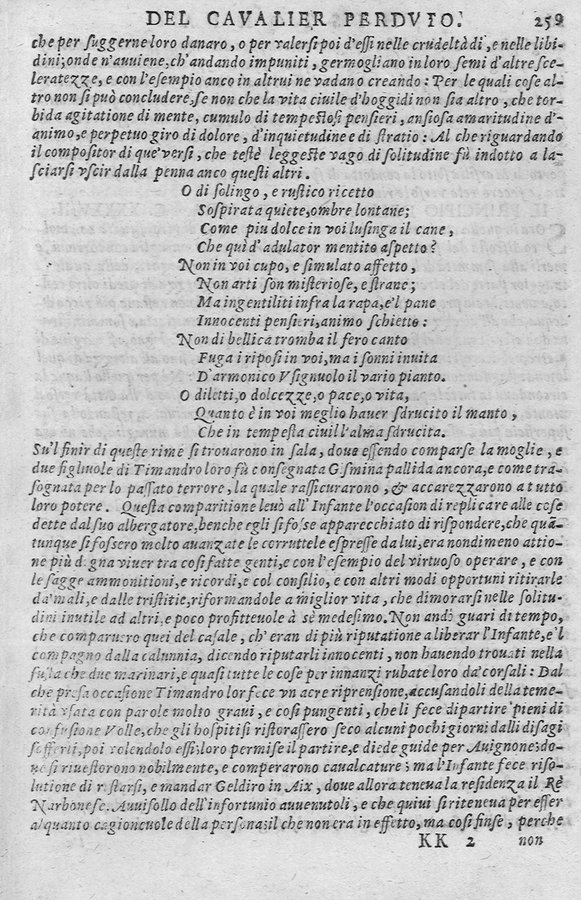 DEL CAVALIER PERDVTO. 259
che per ſuggerne loro danaro, o per valerſi poi d'eſsi nelle crudeltà di, e nelle libi-
dini; onde n'auuiene, ch'andando impuniti, germogliano in loro ſemi d'altre ſce-
leratezze, e con l'eſempio anco in altrui ne vadano creando: Per le quali coſe al-
tro non ſi può concludere, ſe non che la vita ciuile d'hoggidì non ſia altro, che tor-
bida agitatione di mente, cumulo di tempeſtoſi penſieri, anſioſa amaritudine d'-
animo, e perpetuo giro di dolore, d'inquietudine e di ſtratio: Al che riguardando
il compoſitor di que' verſi, che teſtè leggeſte vago di ſolitudine fù indotto a la-
ſciarſi vſcir dalla penna anco queſti altri.
O di ſolingo, e ruſtico ricetto
Soſpirata quiete, ombre lontane;
Come piu dolce in voi luſinga il cane,
Che quì d'adulator mentito aſpetto?
Non in voi cupo, e ſimulato affetto,
Non arti ſon miſterioſe, e ſtrane;
Ma ingentiliti infra la rapa, e'l pane
Innocenti penſieri, animo ſchietto:
Non di bellica tromba il fero canto
Fuga i ripoſi in voi, ma i ſonni inuita
D'armonico Vſignuolo il vario pianto.
O diletti, o dolcezze, o pace, o vita,
Quanto è in voi meglio hauer ſdrucito il manto,
Che in tempeſta ciuil l'alma ſdrucita.
Su'l finir di queſte rime ſi trouarono in ſala, doue eſſendo comparſe la moglie, e
due figliuole di Timandro loro fù conſegnata Giſmina pallida ancora, e come tra-
ſognata per lo paſſato terrore, la quale raſſicurarono, & accarezzarono a tutto
loro potere. Queſta comparitione leuò all'Infante l'occaſione di replicare alle coſe
dette dal ſuo albergatore, benche egli ſi foſſe apparecchiato di riſpondere, che quā-
tunque ſi foſſero molto auanzate le corruttele eſpreſſe da lui, era nondimeno attio-
ne più degna viuer tra coſi fatte genti, e con l'eſempio del virtuoſo operare, e con
le ſagge ammonitioni, e ricordi, e col conſilio, e con altri modi opportuni ritirarle
da' mali, e dalle triſtitie, riformandole a miglior vita, che dimorarſi nelle ſolitu-
dini inutile ad altri, e poco profitteuole à sè medeſimo. Non andò guari di tempo,
che comparuero quei del caſale, ch'eran di più riputatione a liberar l'Infante, e'l
compagno dalla calunnia, dicendo riputarli innocenti, non hauendo trouati nella
fuſta che due marinari, e quaſi tutte le coſe per innanzi rubate loro da' corſali: Dal
che preſa occaſione Timandro lor fece vn acre riprenſione, accuſandoli della teme-
rità vſata con parole molto graui, e coſi pungenti, che li fece dipartire pieni di
confuſione Volle, che gli hoſpiti ſi riſtoraſſero ſeco alcuni pochi giorni dalli diſagi
ſofferti, poi volendolo eſſi; loro permiſe il partire, e diede guide per Auignone; do-
ue ſi riueſtirono nobilmente, e comperarono caualcature; ma l'Infante fece riſo-
lutione di reſtarſi, e mandar Geldiro in Aix, doue allora teneua la reſidenza il Rè
Narboneſe. Auuiſollo dell'infortunio auuenutoli, e che quiui ſi riteneua per eſſer
alquanto cagioneuole della perſona; il che non era in effetto, ma coſi finſe, perche
KK 2 non